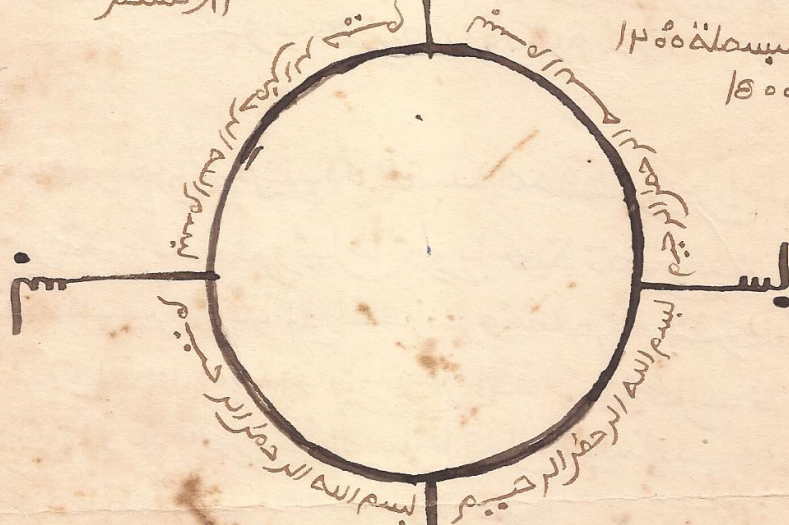 بسملة
بسم الله الرحمن الرحيم
بسم الله الرحمن الرحيم
بسم الله الرحمن الرحيم
بسم الله الرحمن الرحيم
بسـ
بسـ